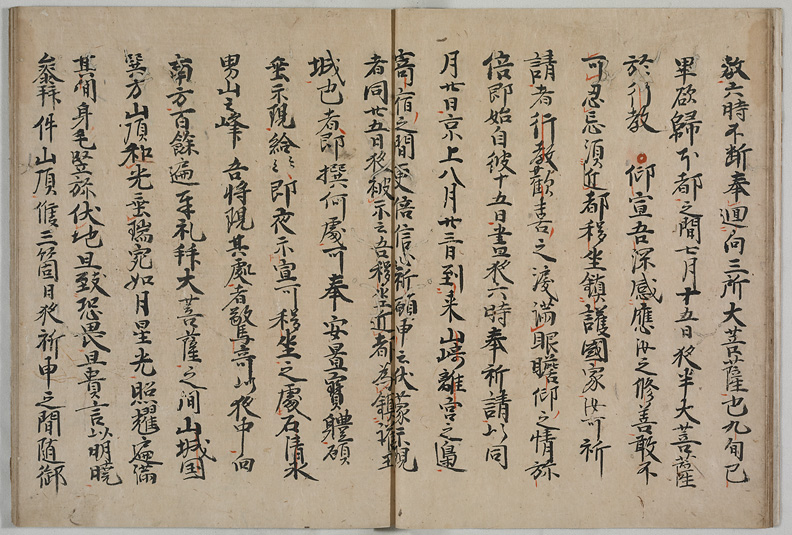 敬六時不断奉廻向三所大菩薩也九旬已
畢欲歸本都之間七月十五日夜半大菩薩
於行教 仰宣吾深感應汝之修善敢不
可忍忘須近都移坐鎮護國家汝可祈
請者行教歡喜之淚滿眼瞻仰之情
倍即始自彼十五日晝夜六時奉祈請以同
月廿日京上八月廿三日到来山崎離宮之邊
寄宿之間更倍信心祈願申云伏蒙示現
者同廿五日夜被示云吾移坐近都為鎮護王
城也者即撰何處可奉安置寶體願
垂示現給々即夜示宣可移坐之處石清水
男山之峰吾将現其處者驚奇以夜中向
南方百餘遍奉礼拜大菩薩之間山城国
巽方山頂和光垂瑞宛如月星光照耀遍滿
其間身毛竪 伏地且致恐畏且貴言以明暁
参拜件山頂 三箇日夜祈申之間随御